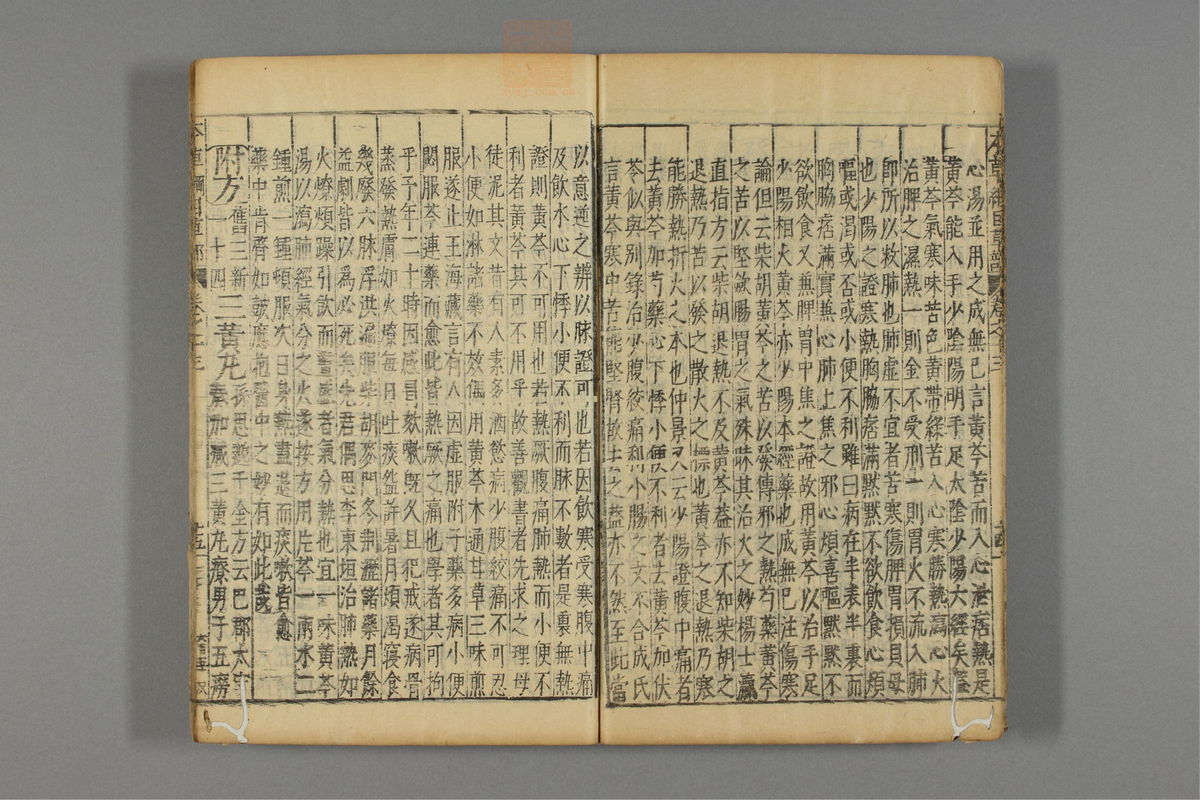 心湯並用之成無己言黃芩苦而入心泄痞熱是
黃芩能入手少陰陽明手足太陰少陽六經矣蓋
黃芩氣寒味苦色黃帶綠苦入心寒勝熱瀉心火
治脾之濕熱一則金不受刑一則胃火不流入肺
即所以救肺也肺虛不宜者苦寒傷脾胃損其母
也少陽之證寒熱胸脇痞滿默默不欲飲食心煩
嘔或渴或否或小便不利雖曰病在半表半裏而
胸脇痞滿實兼心肺上焦之邪心煩喜嘔默默不
欲飲食又兼脾胃中焦之證故用黃芩以治手足
少陽相火黃芩亦少陽本經藥也成無己注傷寒
論但云柴胡黃芩之苦以發傳邪之熱芍藥黃芩
之苦以堅斂腸胃之氣殊昧其治火之妙楊士瀛
直指方云柴胡退熱不及黃芩蓋亦不知柴胡之
退熱乃苦以發之散火之標也黃芩之退熱乃寒
能勝熱折火之本也仲景又云少陽證腹中痛者
去黃芩加芍藥心下悸小便不利者去黃芩加伏
苓似與別錄治少腹絞痛利小腸之文不合成氏
言黃芩寒中苦能堅腎故去之蓋亦不然至此當
以意逆之辨以脉證可也若因飲寒受寒腹中痛
及飲水心下悸小便不利而脉不數者是裏無熱
證則黃芩不可用也若熱厥腹痛肺熱而小便不
利者黃芩其可不用乎故善觀書者先求之理毋
徒泥其文昔有人素多酒慾病少腹絞痛不可忍
小便如淋諸藥不效偶用黃芩木通甘草三味煎
服遂止王海藏言有人因虛服附子藥多病小便
閟服芩連藥而愈此皆熱厥之痛也學者其可拘
乎予年二十時因感冒欬嗽既久且犯戒遂病骨
蒸發熱膚如火燎每日吐痰盌許暑月煩渴寢食
幾廢六脉浮洪遍服柴胡麥門冬荊瀝諸藥月餘
益劇皆以為必死矣先君偶思李東垣治肺熱如
火燎煩躁引飲而晝盛者氣分熱也宜一味黃芩
湯以瀉肺經氣分之火遂按方用片芩一兩水二
鍾煎一鍾頓服次日身熱盡退而痰嗽皆愈
藥中肯綮如鼓應桴醫中之妙有如此哉
附方 舊三新一十四 三黃丸 孫思邈千金方云巴郡太守奏加減三黃丸療男子五癆